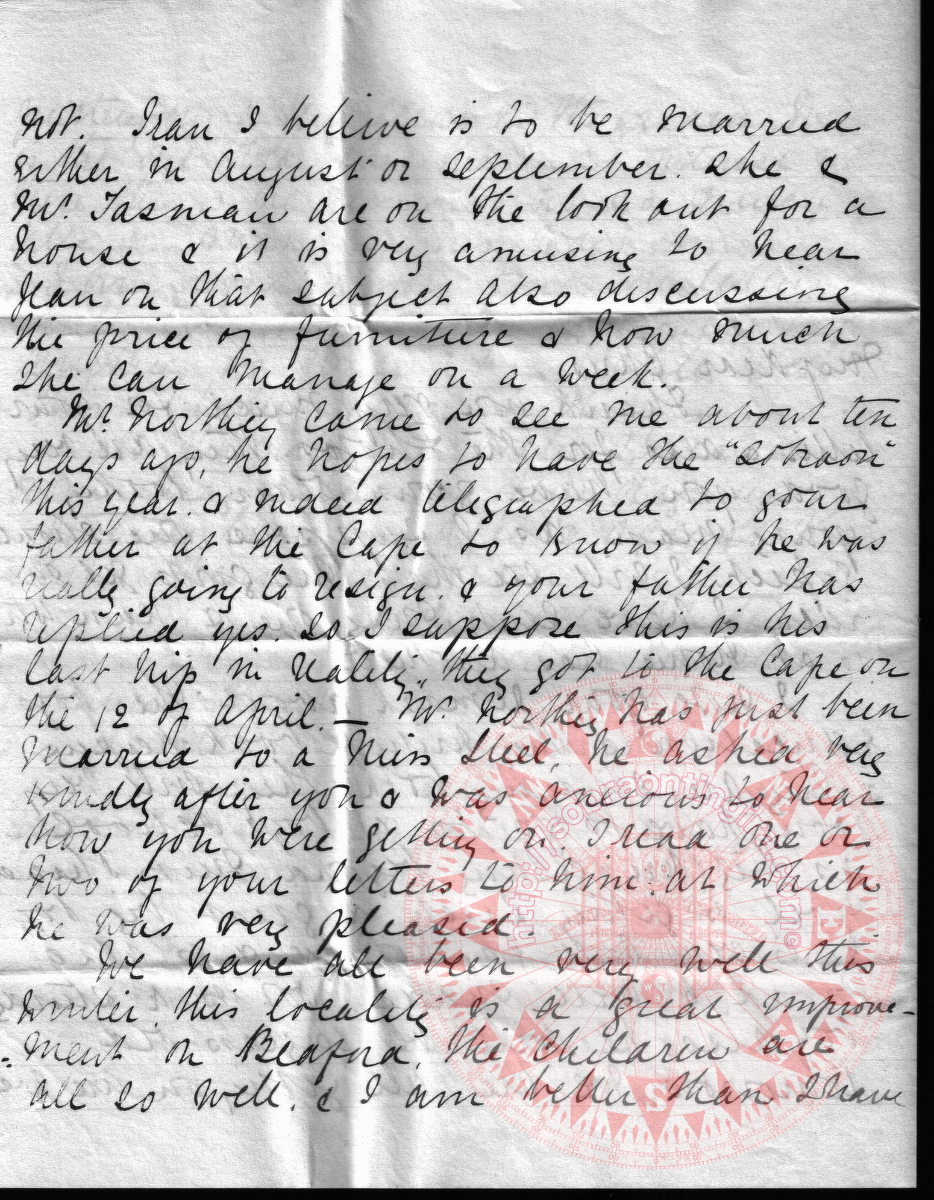 not. Jean I believe is to be married
either in August or September. She &
Mr. Tasman are on the look out for a
house & it is very amusing to hear
Jean on that subject also discussing
the price of furniture & how much
she can manage on a week.
Mr. Northey came to see me about ten
days ago, he hopes to have the "Sobraon"
this year. & indeed telegraphed to your
father at the Cape to know if he was
really going to resign. & your father has
replied yes. So I suppose this is his
last trip in reality, they got to the Cape on
the 12 of April. — Mr. Northey has just been
married to a Miss Steel, he asked very
kindly after you & was anxious to hear
how you were getting on. I read one or
two of your letters to him at which
he was very pleased.
We have all been very well this
winter, this locality is a great improve-
-ment on Bedford, the Children are
all so well. & I am better than I have